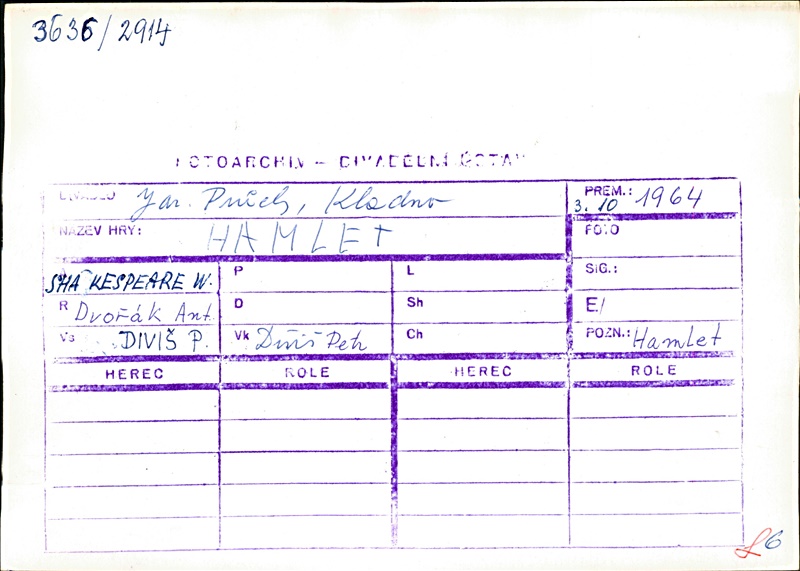 3636/2914
FOTOARCHIV – DIVADELNÍ ÚSTAV
DIVADLO Jar. Průch, Kladno PREM.: 3. 10 1964
NÁZEV HRY: HAMLET FOTO
SHAKESPEARE W. P L SIG.:
R Dvořák Ant. D Sh E/
Vs DIVIŠ P. Vk Diviš Petr Ch POZN.: Hamlet
HEREC ROLE HEREC ROLE
6